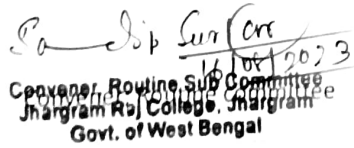 Sandip Sur Cor
16/08/2023
Convener, Routine Sub Committee
Jhargram Raj College, Jhargram
Govt. of West Bengal